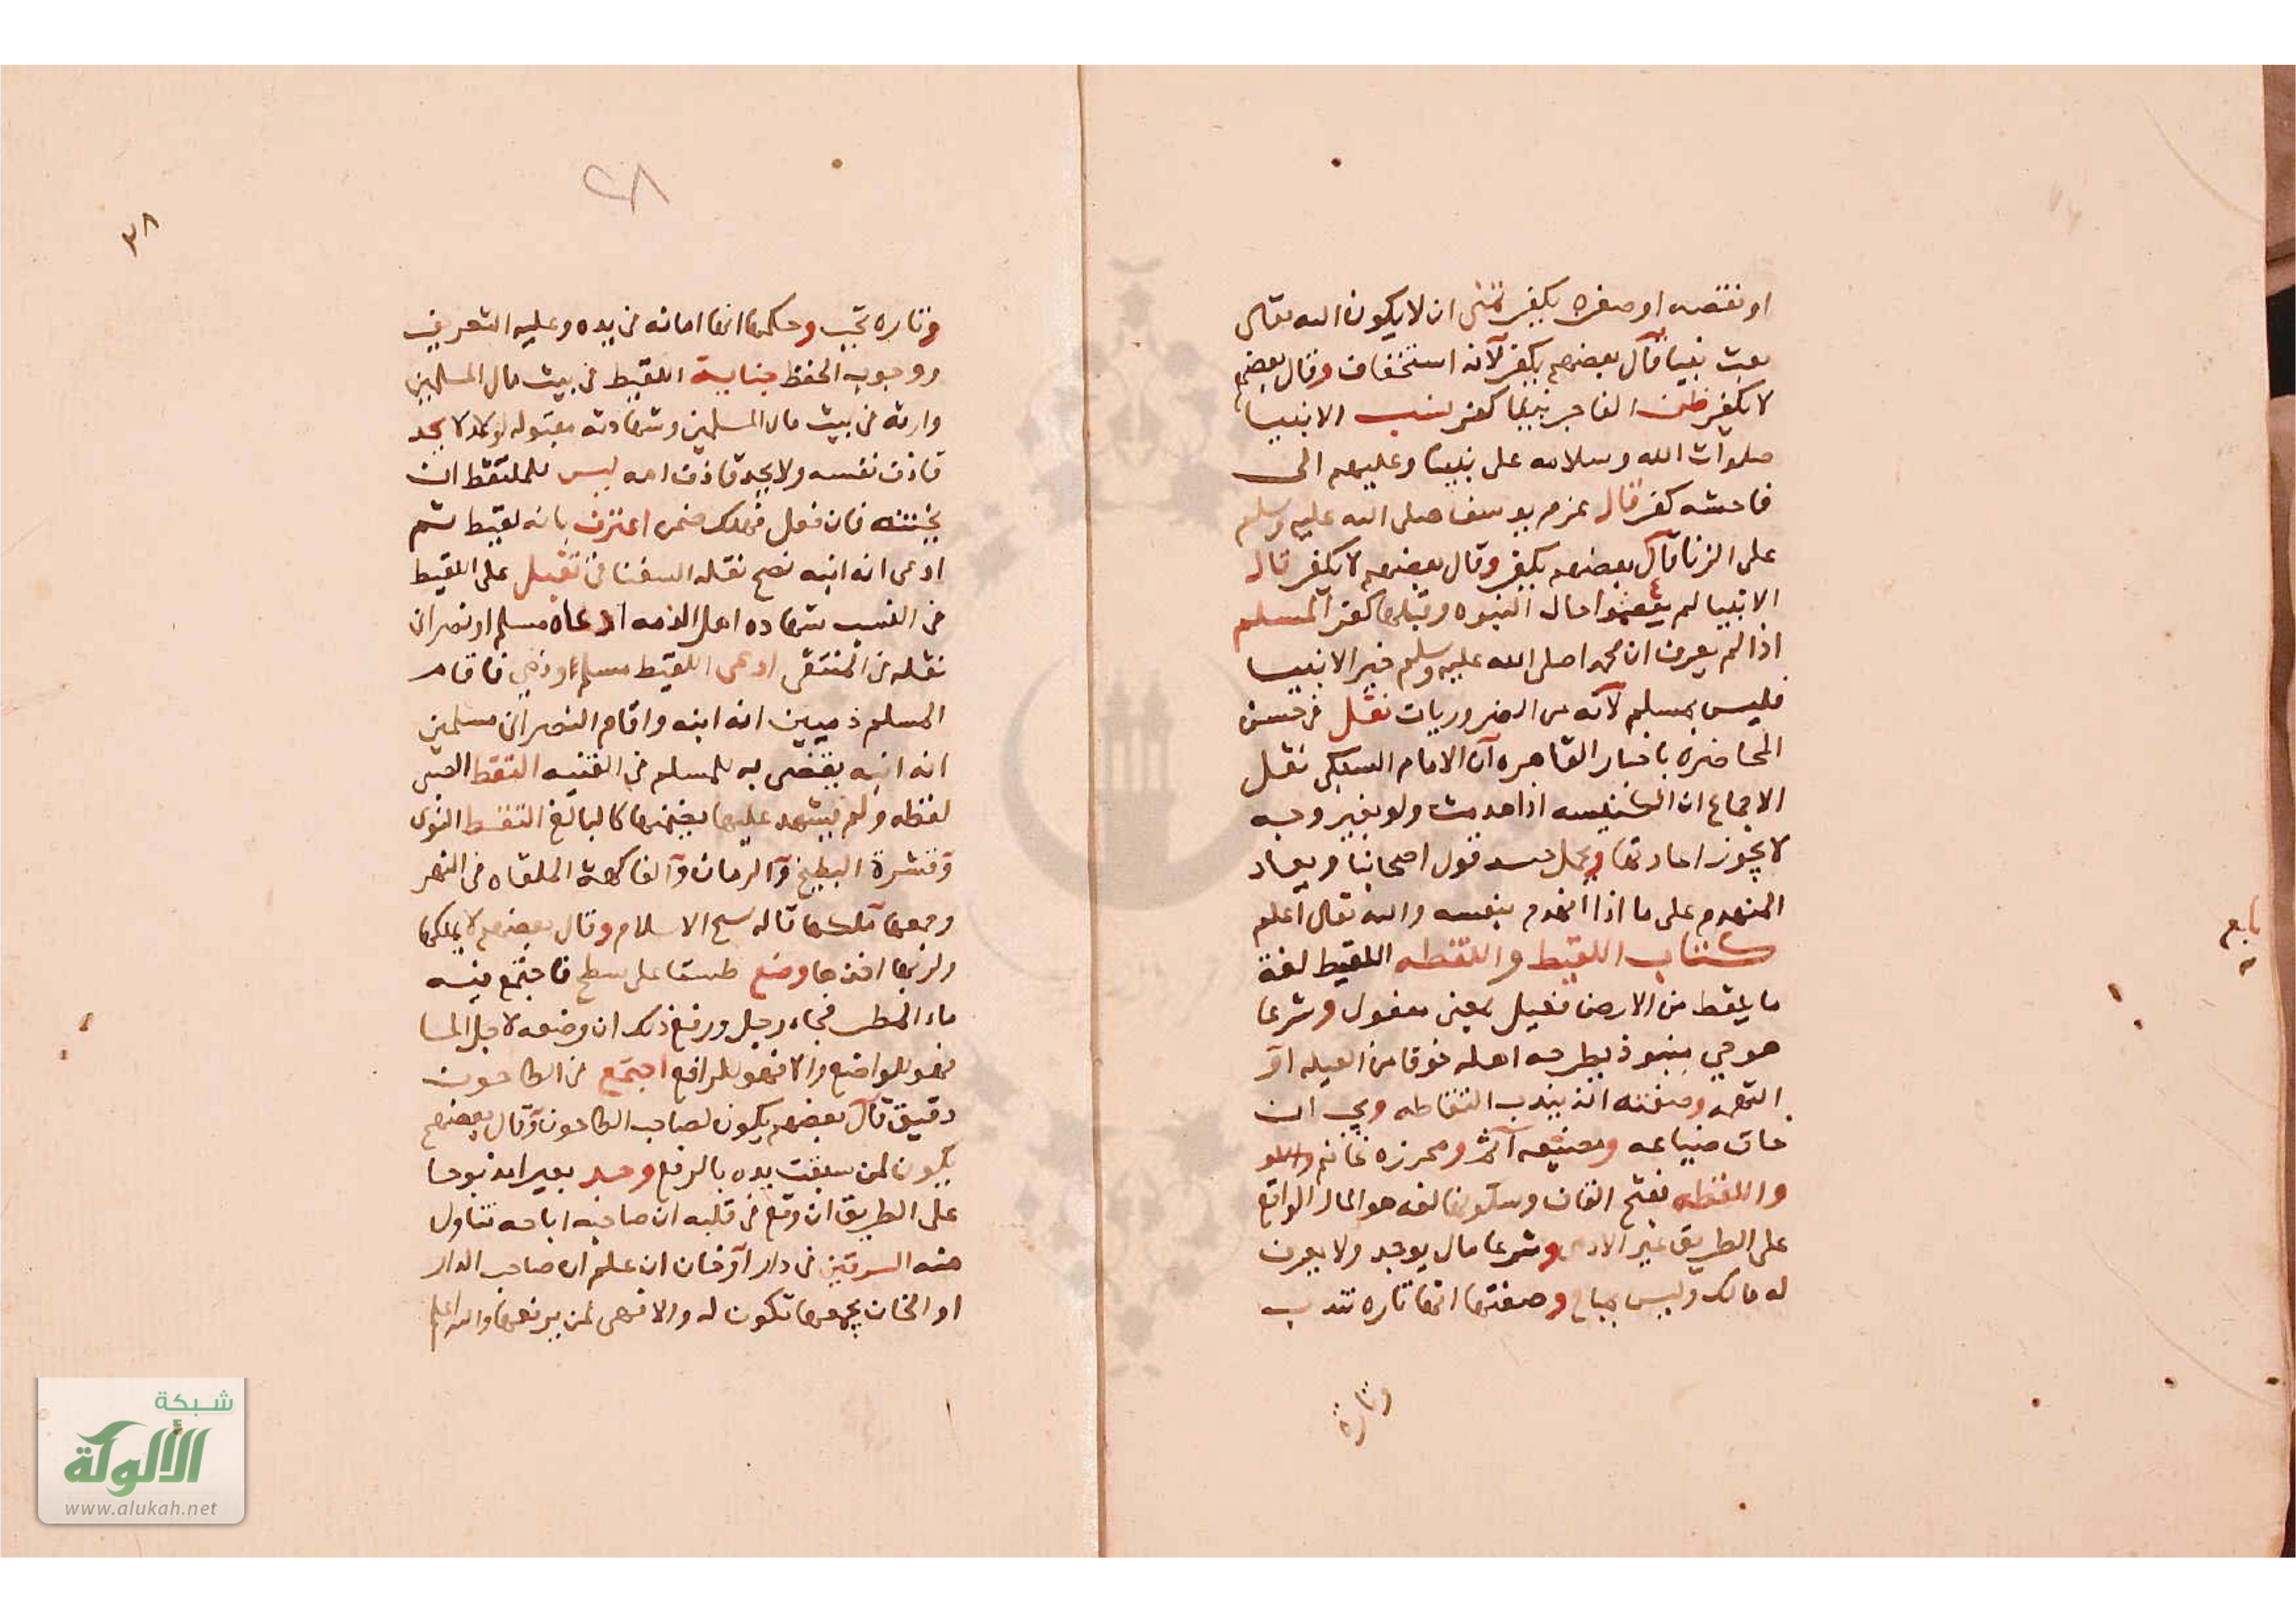 او نقصه او صغره يكفر تمنى ان لا يكون الله تعالى
بعث نبيا قال بعضهم يكفر لانه استخفاف وقال بعضهم
لا يكفر ظن الفاجر نبيا كفر نسب الانبيا
صلوات الله وسلامه على نبينا وعليهم الى
فاحشه كفر قال عزم يوسف صلى الله عليه وسلم
على الزنا قال بعضهم يكفر وقال بعضهم لا يكفر قال
الانبيا لم يعصوا حال النبوه وقبلها كفر المسلم
اذا لم يعرف ان محمدا صلى الله عليه وسلم خير الانبيا
فليس بمسلم لانه من الضروريات نقل في حسن
المحاضرة باخبار القاهره ان الامام السبكي نقل
الاجماع ان الكنيسه اذا هدمت ولو بغير وجه
لا يجوز اعادتها ويحمل قول اصحابنا ويعاد
المنهدم على ما اذا انهدم بنفسه والله تعالى اعلم
كتاب اللقيط واللقطه اللقيط لغة
ما يلقط من الارض فعيل بمعنى مفعول وشرعا
هو حي منبوذ يطرحه اهله خوفا من العيله او
التهمه وصفته انه يندب التقاطه ويجب ان
خاف ضياعه ومضيعه آثم ومحرزه غانم
واللقطه بفتح القاف وسكونها لغه هو المال الواقع
على الطريق غير الادمي وشرعا مال يوجد ولا يعرف
له مالك وليس بمباح وصفتها انها تاره تندب
وتارة
تابع
٣٨
٢٨
وتاره تجب وحكمها انها امانه في يده وعليه التعريف
ووجوب الحفظ جناية اللقيط في بيت مال المسلمين
وارثه في بيت مال المسلمين وشهادته مقبوله لا يحد
قاذف نفسه ولا يحد قاذف امه ليس للملتقط ان
يختنه فان فعل فهلك ضمن اعترف بانه لقيط ثم
ادعى انه ابنه صح نقله السغنا في تقبل على اللقيط
في النسب شهاده اهل الذمه ادعاه مسلم او نصراني
نقله في المنتقى ادعى اللقيط مسلم وذمي فاقام
المسلم ذميين انه ابنه واقام النصراني مسلمين
انه ابنه يقضى به للمسلم في القنيه التقط الصبي
لقطه ولم يشهد عليها يضمنها كالبالغ التقط النوى
وقشرة البطيخ والرمان والفاكهة الملقاه في النهر
وجمعها تملكها قاله شيخ الاسلام وقال بعضهم لا يملكها
ولربها اخذها وضع طستا على سطح فاجتمع فيه
ماء المطر فجاء رجل ورفع ذلك ان وضعه لاجل الما
فهو للواضع والا فهو للرافع اجتمع في الطاحون
دقيق قال بعضهم يكون لصاحب الطاحون وقال بعضهم
يكون لمن سبقت يده بالرفع وجد بعيرا مذبوحا
على الطريق ان وقع في قلبه ان صاحبه اباحه تناول
منه السرقين في دار او خان ان علم ان صاحب الدار
او الخان يجمعها تكون له والا فهي لمن يرفعها والله اعلم
شبكة
الألوكة
www.alukah.net